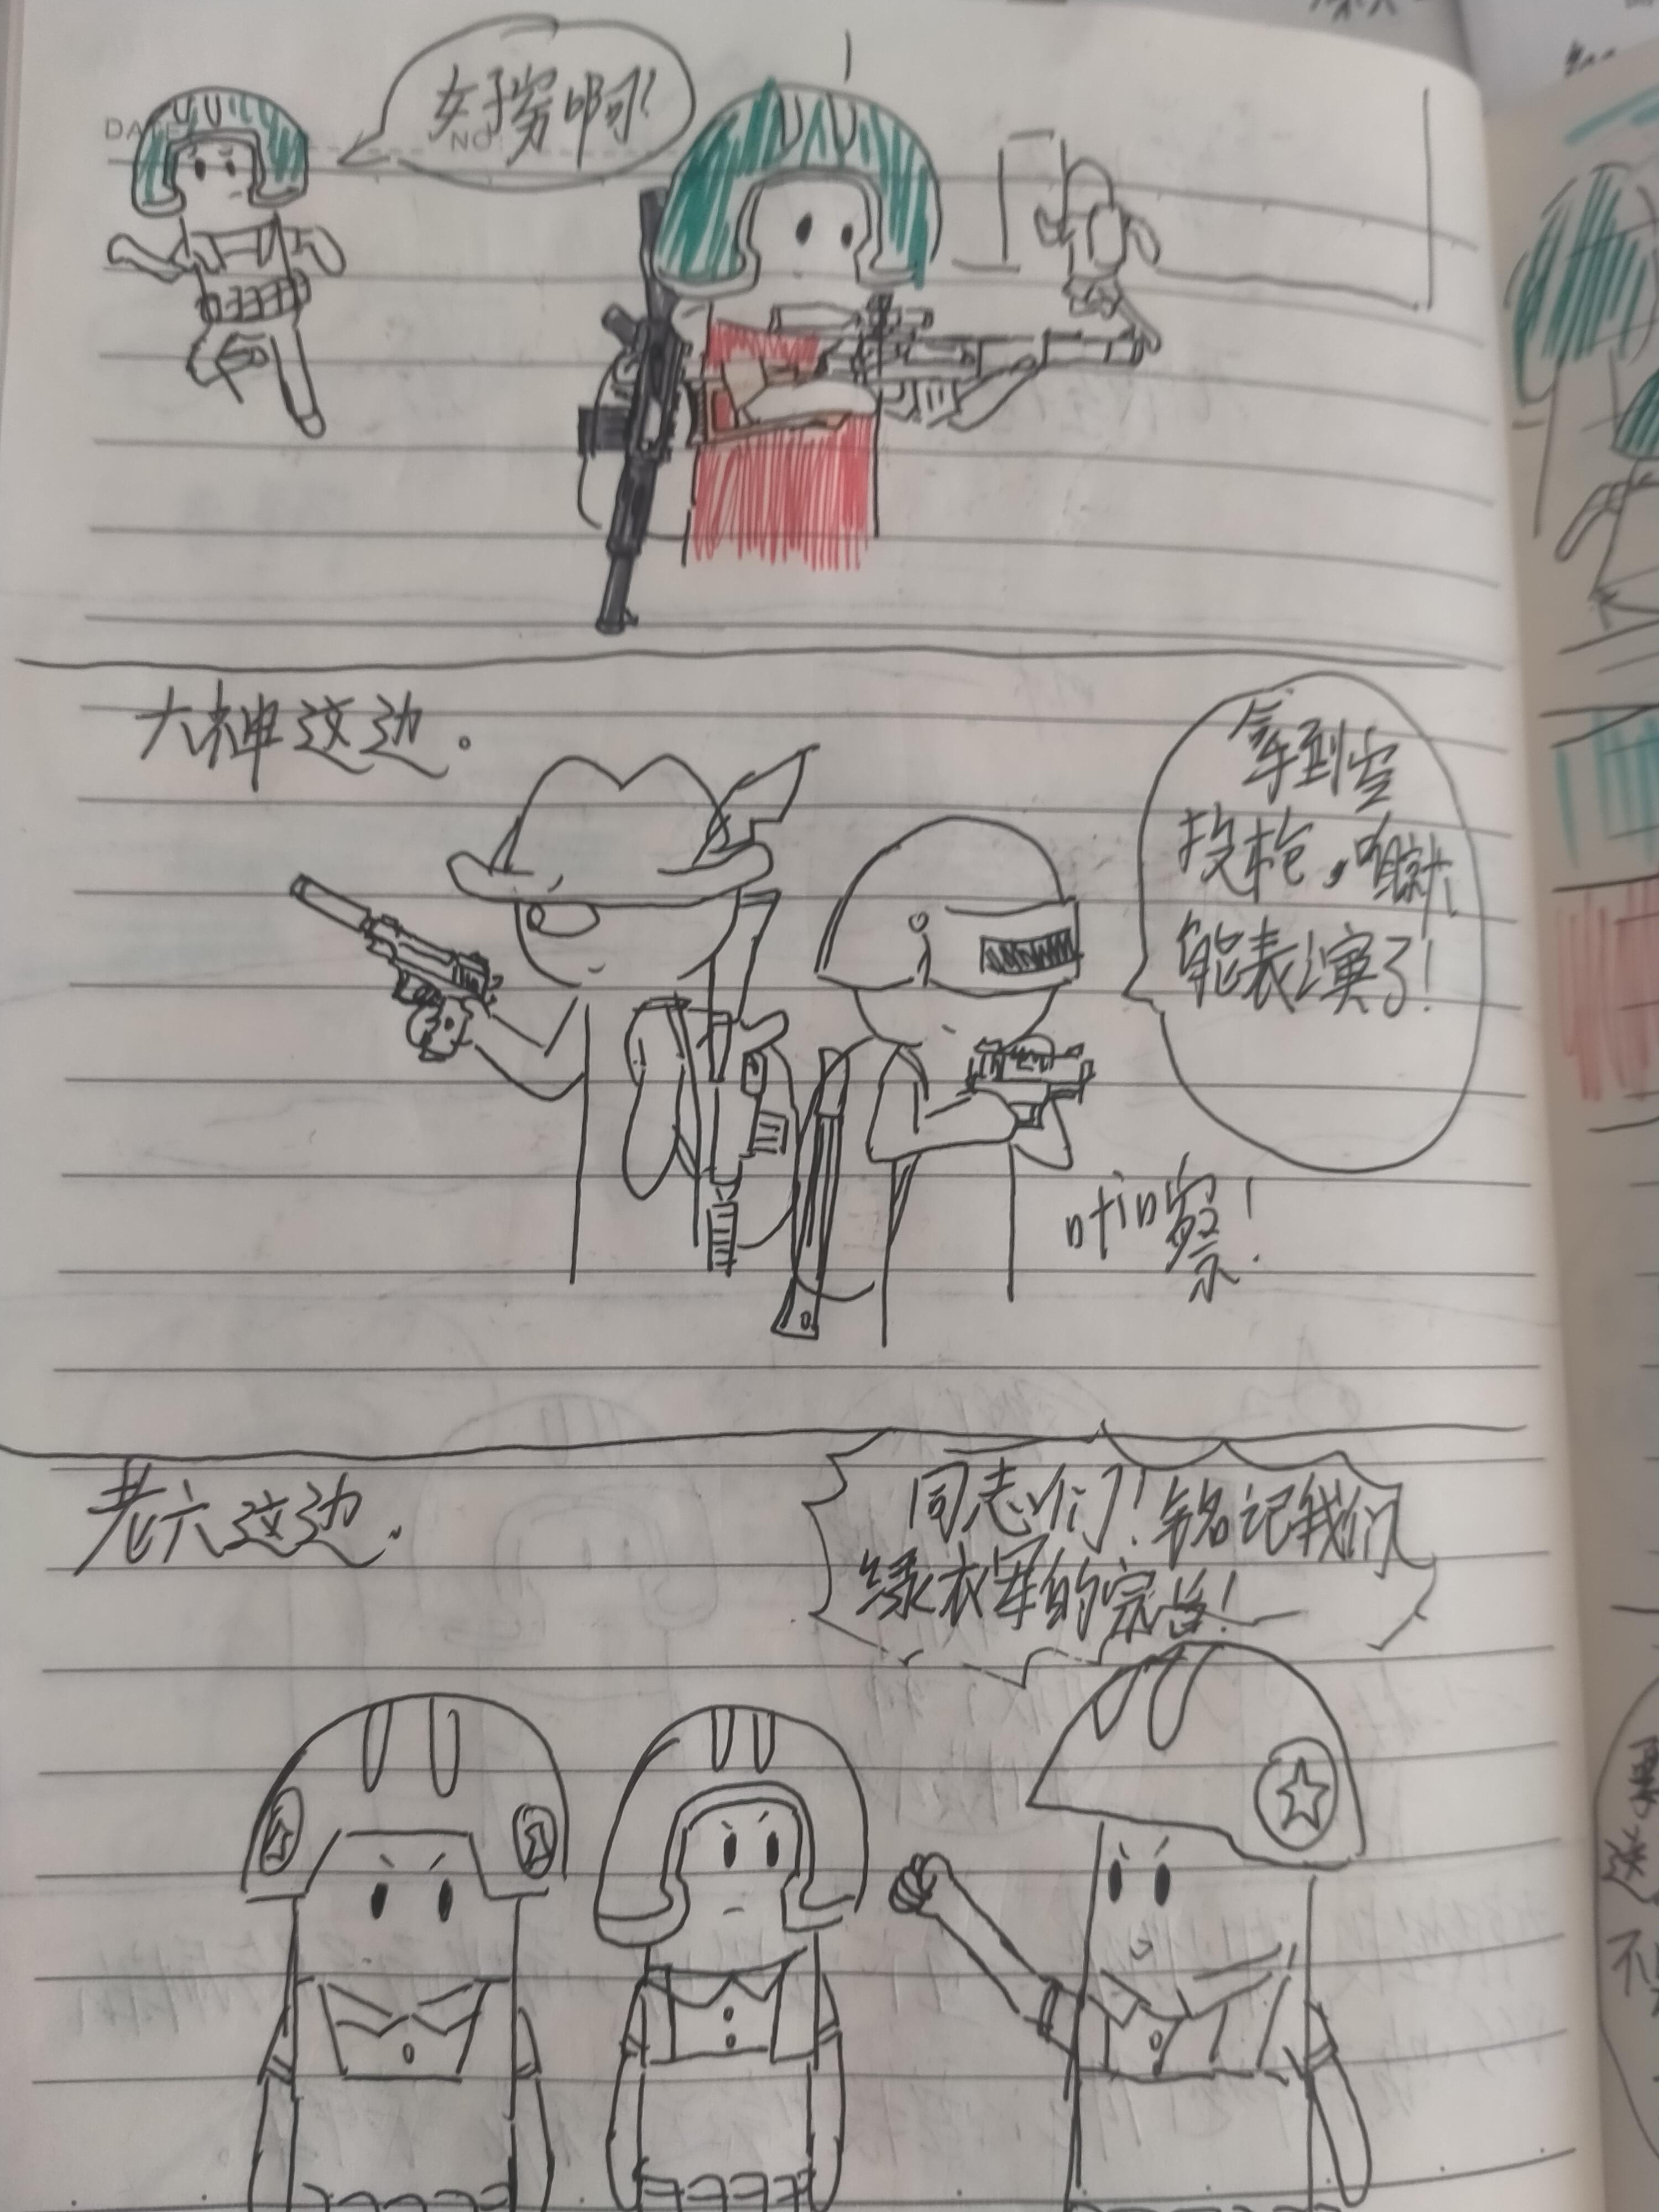 DATE
NO
好穷啊!
大神这边.
拿到空
投枪,咱就
能表演了!
咔嚓!
老六这边.
同志们!铭记我们
绿衣军的宗旨!